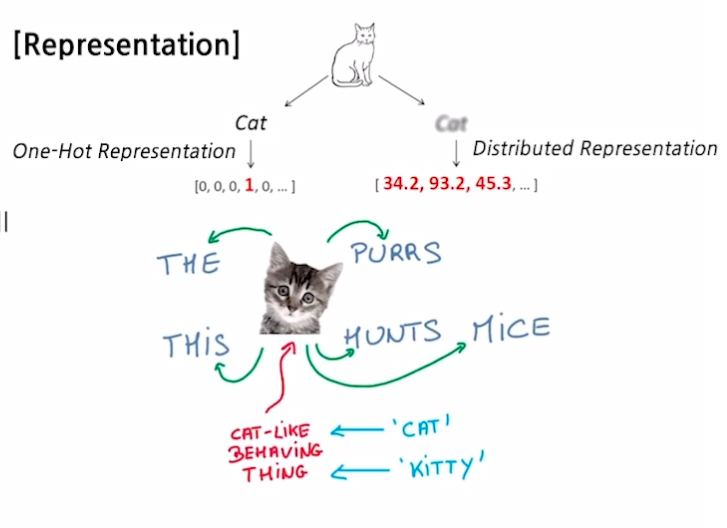 [Representation]
Cat
Cat
One-Hot Representation
Distributed Representation
[0, 0, 0, 1, 0, ... ]
[ 34.2, 93.2, 45.3, ... ]
THE
PURRS
THIS
HUNTS MICE
CAT-LIKE
BEHAVING
THING
'CAT'
'KITTY'